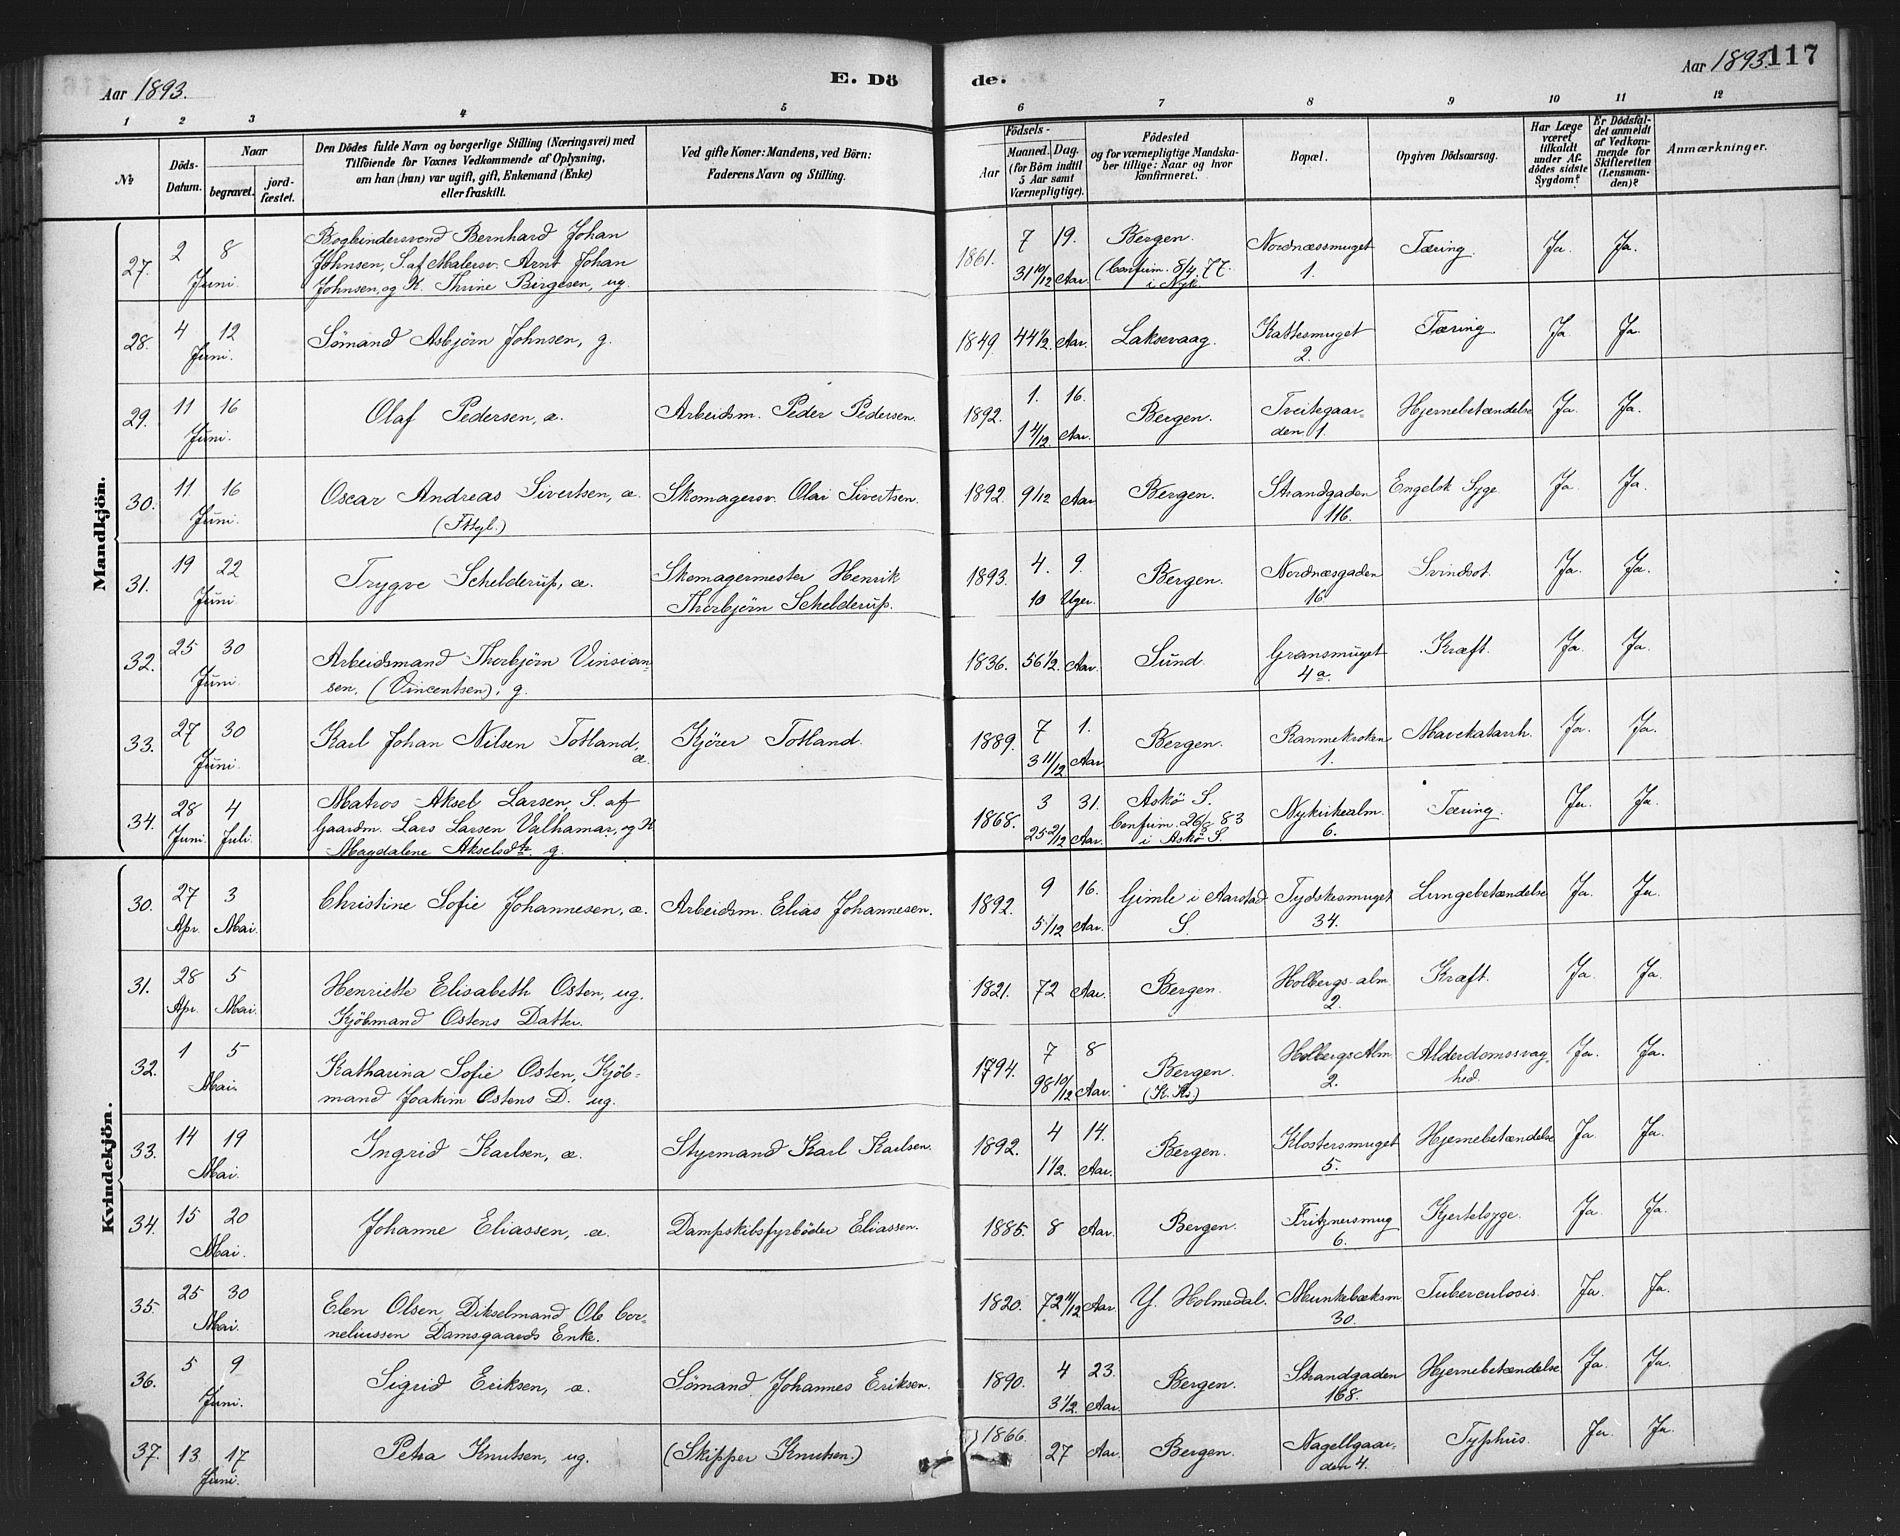 Aar 1893.
E. Dö
de.
Aar 1893.
117
1 2 3 4 5 6 7 8 9 10 11 12
№
Döds-
Datum.
Naar
begravet.
jord-
fæstet.
Den Dödes fulde Navn og borgerlige Stilling (Næringsvei) med
Tilföiende for Voxnes Vedkommende af Oplysning,
om han (hun) var ugift, gift, Enkemand (Enke)
eller fraskilt.
Ved gifte Koner: Mandens, ved Börn:
Faderens Navn og Stilling.
Födsels-
Aar
Maaned. Dag.
(for Börn indtil
5 Aar samt
Værnepligtige).
Födested
og for værnepligtige Mandska-
ber tillige: Naar og hvor
konfirmeret.
Bopæl.
Opgiven Dödsaarsag.
Har Læge
været
tilkaldt
under Af-
dödes sidste
Sygdom?
Er Dödsfal-
det anmeldt
af Vedkom-
mende for
Skifteretten
(Lensman-
den)?
Anmærkninger.
Mandkjön.
27. 2 8 Juni. Bogbindersvend Bernhard Johan
Johnsen, S. af Malersv. Arnt Johan
Johnsen, og H. Thrine Birgesen, ug.
1861. 7 19. 31 10/12 Aar. Bergen.
(Confirm. 8/4. 77.
i Nyk.
Nordnæssmuget
1.
Tæring. Ja. Ja.
28. 4 12 Juni. Sömand Asbjörn Johnsen, g.
1849. 44 1/2. Aar. Laksevaag. Kattesmuget
2.
Tæring. Ja. Ja.
29. 11 16 Juni. Olaf Pedersen, æ. Arbeidsm. Peder Pedersen.
1892. 1. 16. 1 4/12. Aar. Bergen. Treitegaar-
den 1.
Hjernebetændelse Ja. Ja.
30. 11 16 Juni. Oscar Andreas Sivertsen, æ. Skomagersv. Olai Sivertsen.
1892. 9/12 Aar. Bergen. Strandgaden
116.
Engelsk Syge. Ja. Ja.
31. 19 22 Juni. Trygve Schelderup, æ. Skomagermester Henrik
Thorbjörn Schelderup.
1893. 4. 9. 10 Uger. Bergen. Nordnæsgaden
16.
Svindsot. Ja. Ja.
32. 25 30 Juni. Arbeidsmand Thorbjörn Vinsian-
sen, (Vincentsen), g.
1836. 56 1/2. Aar. Sund. Gransmuget
4 a.
Kræft. Ja. Ja.
33. 27 30 Juni. Karl Johan Nilsen Totland,
æ.
Kjörer Totland.
1889. 7 1. 3 11/12 Aar. Bergen. Ranmekroken
1.
Mavekatarrh. Ja. Ja.
34. 28 Juni. 4 Juli. Matros Aksel Larsen, S. af
Gaardm. Lars Larsen Valhamar, og H.
Magdalene Akselsdtr. g.
1868. 3 31. 25 2/12 Aar. Askö S.
Confirm. 26/8 83
i Askö S.
Nykirkealm.
6.
Tæring. Ja. Ja.
Kvindekjön.
30. 27 Apr. 3 Mai. Christine Sofie Johannesen, æ. Arbeidsm. Elias Johannesen.
1892. 9 16. 5/12 Aar. Gimle i Aarstad
S.
Tydskesmuget
34.
Lungebetændelse Ja. Ja.
31. 28 Apr. 5 Mai. Henriette Elisabeth Osten, ug.
Kjöbmand Ostens Datter.
1821. 72 Aar. Bergen. Holbergs alm.
2.
Kræft. Ja. Ja.
32. 1 5 Mai. Katharina Sofie Osten, Kjöb-
mand Joakim Ostens D. ug.
1794. 7 8 98 10/12 Aar. Bergen.
(K. K.)
Holbergs Alm.
2.
Alderdomssvag-
hed.
Ja. Ja.
33. 14 19 Mai. Ingrid Karlsen, æ. Styrmand Karl Karlsen.
1892. 4 14. 1 1/2. Aar. Bergen. Klostersmuget
5.
Hjernebetændelse Ja. Ja.
34. 15 20 Mai. Johanne Eliassen, æ. Dampskibsfyrböder Eliassen.
1885. 8 Aar. Bergen. Fritznersmug
6.
Kjertelsyge. Ja. Ja.
35. 25 30 Mai. Elen Olsen, Dikselmand Ole Cor-
neliussen Damsgaards Enke.
1820. 72 11/12 Aar. Y. Holmedal. Munkebæksm
30.
Tuberculosis. Ja. Ja.
36. 5 9 Juni. Sigrid Eriksen, æ. Sömand Johannes Eriksen.
1890. 4 23. 3 1/2. Aar. Bergen. Strandgaden
168.
Hjernebetændelse Ja. Ja.
37. 13 17 Juni. Petra Knutsen, ug. (Skipper Knutsen.)
1866. 27 Aar. Bergen. Nagellgaar-
den 4.
Typhus. Ja. Ja.